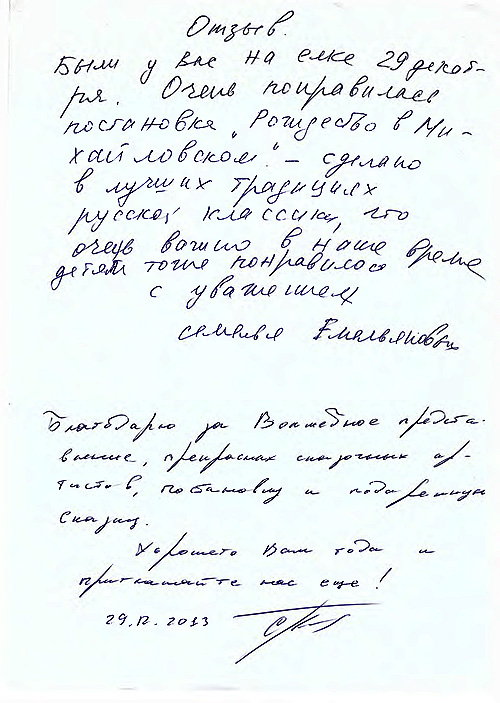 Отзыв.
Были у вас на елке 29 декаб-
ря. Очень понравилась
постановка „Рождество в Ми-
хайловском." – сделано
в лучших традициях
русской классики, что
очень важно в наше время
детям тоже понравилось
с уважением
семья Емельяновых
Благодарю за Волшебное предста-
вление, прекрасных сказочных ар-
тистов, постановку и подаренную
сказку.
Хорошего Вам года и
приглашайте нас еще!
29.12.2013